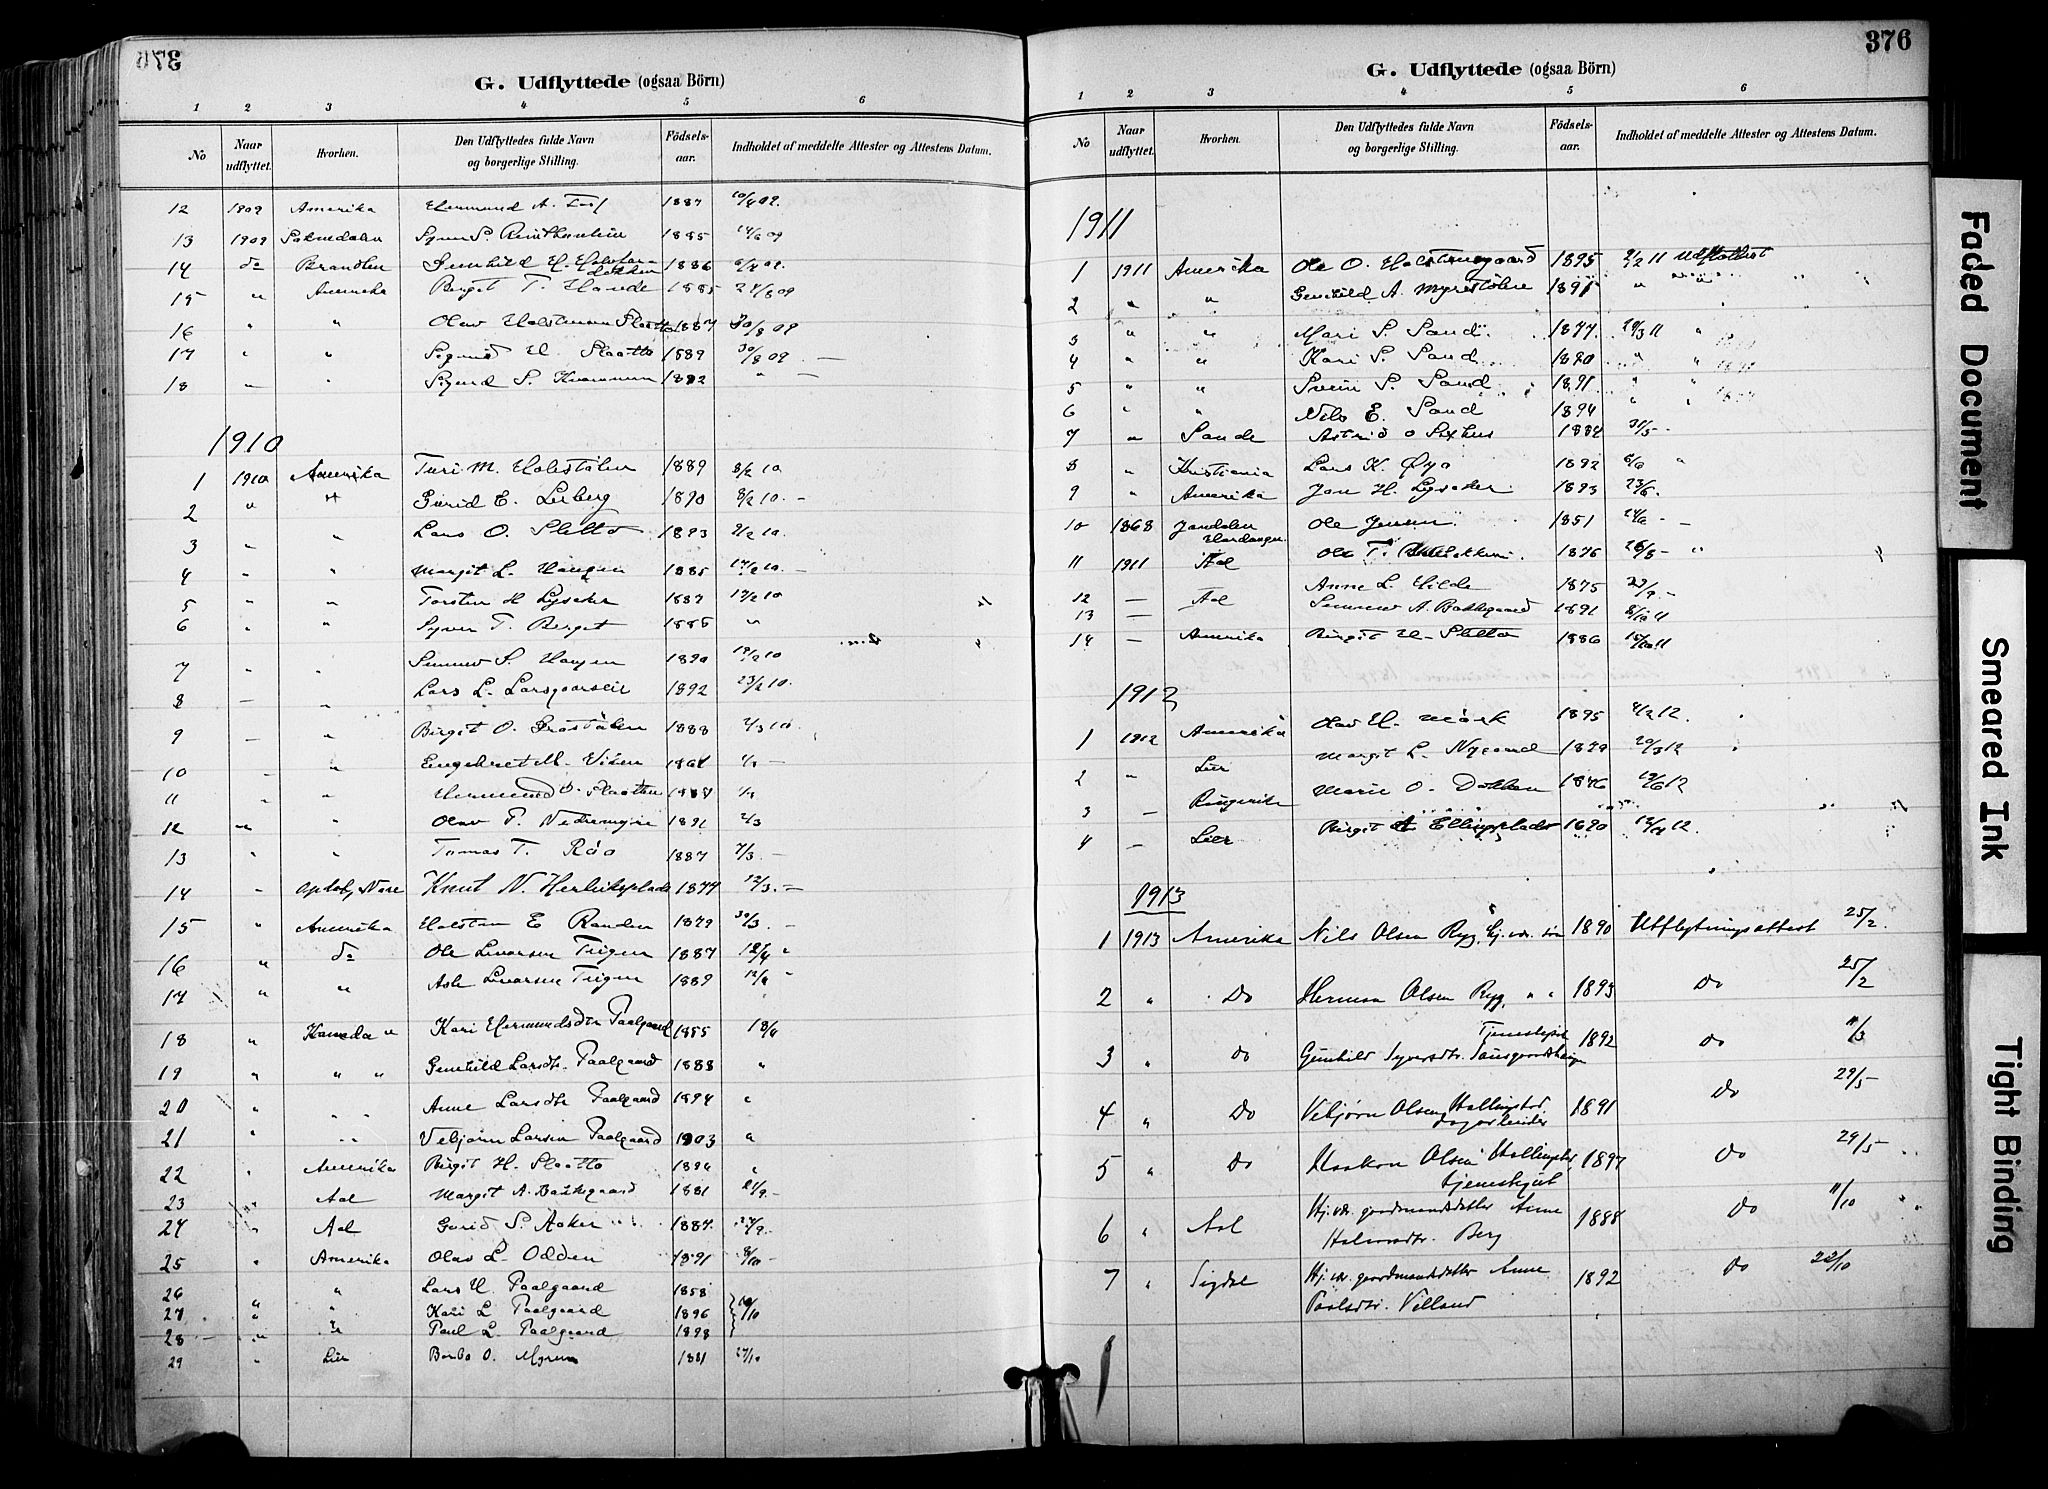 376
G. Udflyttede (ogsaa Börn)
1 2 3 4 5 6
No
Naar udflyttet.
Hvorhen.
Den Udflyttedes fulde Navn og borgerlige Stilling.
Födselsaar.
Indholdet af meddelte Attester og Attestens Datum.
12 1909 Amerika Hermund A. 1887
13 1909 Soknedalen 1885 09
14 do Gunhild H. 1886 09.
15 " Amerika Birgit T. Hande 1885 24/8 09
16 " " Olav Holstensen 1887 30/8 09
17 " " Sigrid H. Slaatto 1889 30/8 09 —
18 — " Sigurd S. Kvammen 1892 " —
1910
1 1910 Amerika Turi M. Holestølen 1889 8/2 10
2 " " Gurid E. Lerberg 1890 8/2 10. –
3 " " Lars O. Sletto 1893 9/2 10.
4 " " Margit L. Haugen 1885 17/2 10. –
5 " " Torsten H Lysaker 1887 17/2 10
6 " " Syver T. Berget 1885 "
7 " " Sunnev S. Haugen 1890 19/2 10
8 — " Lars L. Larsgaardeie 1892 23/2 10.
9 — " Birgit O. 1888 2/3 10.
10 – " Engebret M. Viken
11 " " Hermund O. Slaatten
12 " " Olav P. Nedremyre 1891 2/3
13 " " Tomas T. Røo 1887 7/3. –
14 " Knut N. Herleiksplads 1877 12/3. –
15 " Amerika Holsten E Randen 1879 30/3. –
16 " do Ole Levorsen Trigen 1887 12/4 "
17 " " Asle Levorsen Trigen 1889 12/4 "
18 " Kanada " Kari Hermundsdtr Paalgaard 1855 18/4
19 " " " Gunhild Larsdtr. Paalgaard 1888 "
20 " " " Anne Larsdtr Paalgaard 1894 "
21 " " " Vebjørn Larsen Paalgaard 1903 "
22 " Amerika Birgit H. Slaatto 1894 "
23 Aal Margit A. Bakkegaard 1881 21/9. –
24 " Aal Gurid S. Aaker 1884. 24/9. –
25 " Amerika Olav L Odden 1891 8/10 –
26 " Lars H. Paalgaard 1858
27 " " Kari L Paalgaard 1896 10/10
28 " " Paul L. Paalgaard 1898
29 " Lier Barbo O. Myren 1881 27/10
376
G. Udflyttede (ogsaa Börn)
1 2 3 4 5 6
No
Naar udflyttet.
Hvorhen.
Den Udflyttedes fulde Navn og borgerlige Stilling.
Födselsaar.
Indholdet af meddelte Attester og Attestens Datum.
1911
1 1911 Amerika Ole O. Holstensgaard 1895 9/2 11 Udfl.attest
2 " " Gunhild A. Myrestølen 1891 "
3 " " Mari S. Sand 1877. 29/3 11 "
4 " " Kari S. Sand 1890 " "
5 " " Svein S. Sand 1891. " "
6 " " Nils E. Sand 1894 " "
7 " Sande Astrid O 1884 31/5 –
8 " Kristiania Lars K. Øyo 1892 6/6 "
9 " Amerika Jon H. Lysaker 1893 23/6.
10 1868 Jondalen Hardanger Ole Jensen 1851 24/6 – –
11 1911 Aal Ole T. 1876 26/8 – "
12 — Aal Anne L. Hilde 1875 23/9. –
13 — Sunnev A. Bakkegaard 1891 8/10 11
14 — Amerika Birgit H. Sletto 1886 15/10 11
1912
1 1912 Amerika Olav H. Mørk 1895 4/2 12.
2 " Lier Margit L. Nygaard 20/3 12
3 — Ringerike Marie O. Dokken 1876 19/6 12
4 — Lier Birgit A Ellingsplads 1890 12.
1913
1 1913 Amerika Nils Olsen Ryg, hj. vær. søn 1890 Utflytningsattest 25/2.
2 " Do Herman Olsen Ryg, " " 1893 Do 25/2
3 " do Gunhild Syversdtr. Tjenestepike 1892 Do 11/3
4 " Do Vebjørn Olsen Hallingstad dagarbeider 1891 Do 29/5
5 " Do Haakon Olsen tjenestegut 1897 Do 29/5
6 " Aal Hj. vær. gaardmandsdatter Anne Halvorsdtr. Berg 1888 Do 11/10
7 " Sigdal Hj. vær. gaardmandsdatter Anne Paalsdtr. Villand 1892 Do 22/10
Faded Document
Smeared Ink
Tight Binding